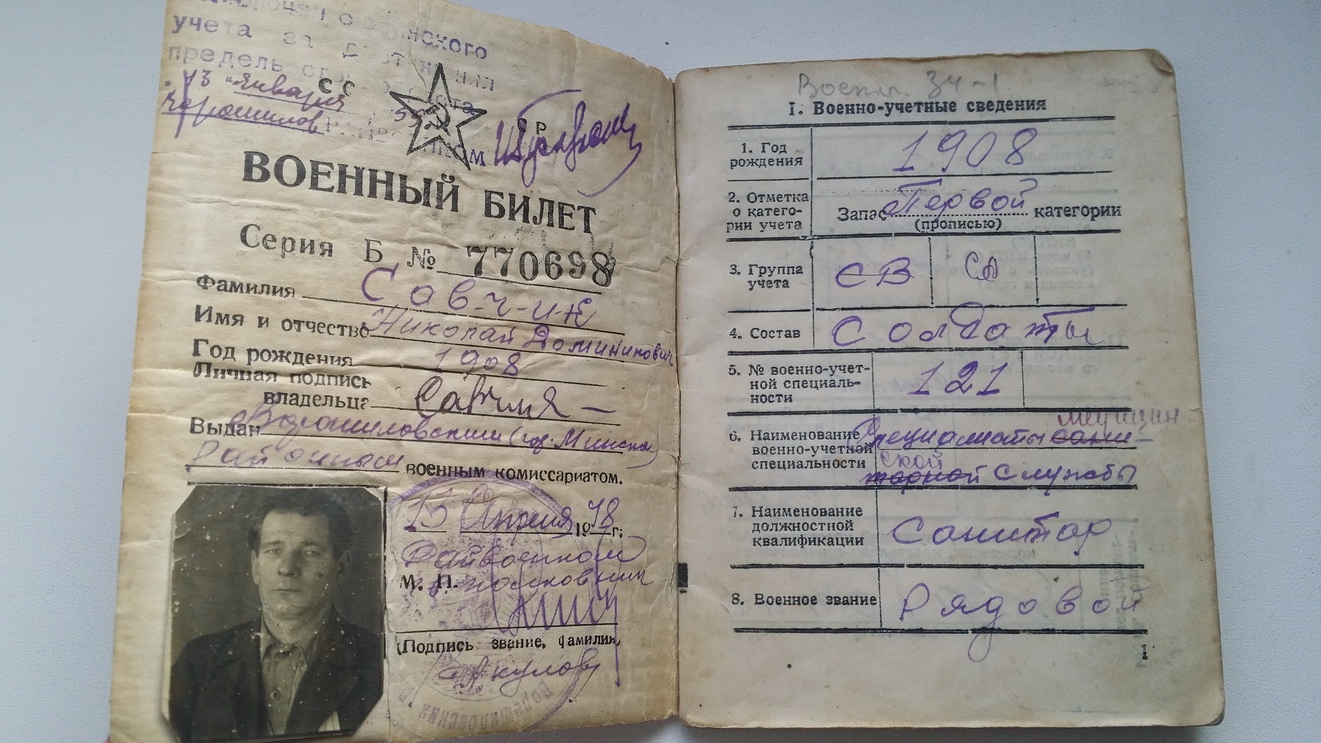 учета за
предель
С С С Р
13 "Января
ВОЕННЫЙ БИЛЕТ
Серия Б № 770698
Фамилия Савчик
Имя и отчество Николай Доминикович
Год рождения 1908
Личная подпись
владельца
Выдан Ворошиловским (гор. Минска)
Районным военным комиссариатом.
15 Апреля 1948 г.
Райвоенком
М. П. полковник
(Подпись звание, фамилия,
Акулов
Военк. 34-1
I. Военно-учетные сведения
1. Год
рождения
1908
2. Отметка
о катего-
рии учета
Запас Первой категории
(прописью)
3. Группа
учета
СВ
СА
4. Состав
Солдаты
5. № военно-учет-
ной специаль-
ности
121
6. Наименование
военно-учетной
специальности
медицин-
Специалисты сани-
ской
тарной службы
7. Наименование
должностной
квалификации
Санитар
8. Военное звание
Рядовой
1